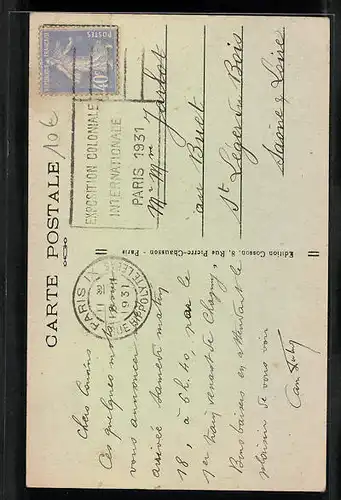 CARTE POSTALE
10€
POSTES
40c
EXPOSITION COLONIALE
INTERNATIONALE
PARIS 1931
PARIS IX
1931
Édition Cosson, 8, Rue Pierre-Chausson - Paris
Chers Cousins
Ces quelques mots pour
vous annoncer
arrivée samedi matin
18, à 6h.40, par le
1er train venant de Chagny,
Bons baisers en attendant le
plaisir de vous voir
Mr Mme
au Buet
St Léger du Bois
Saône & Loire